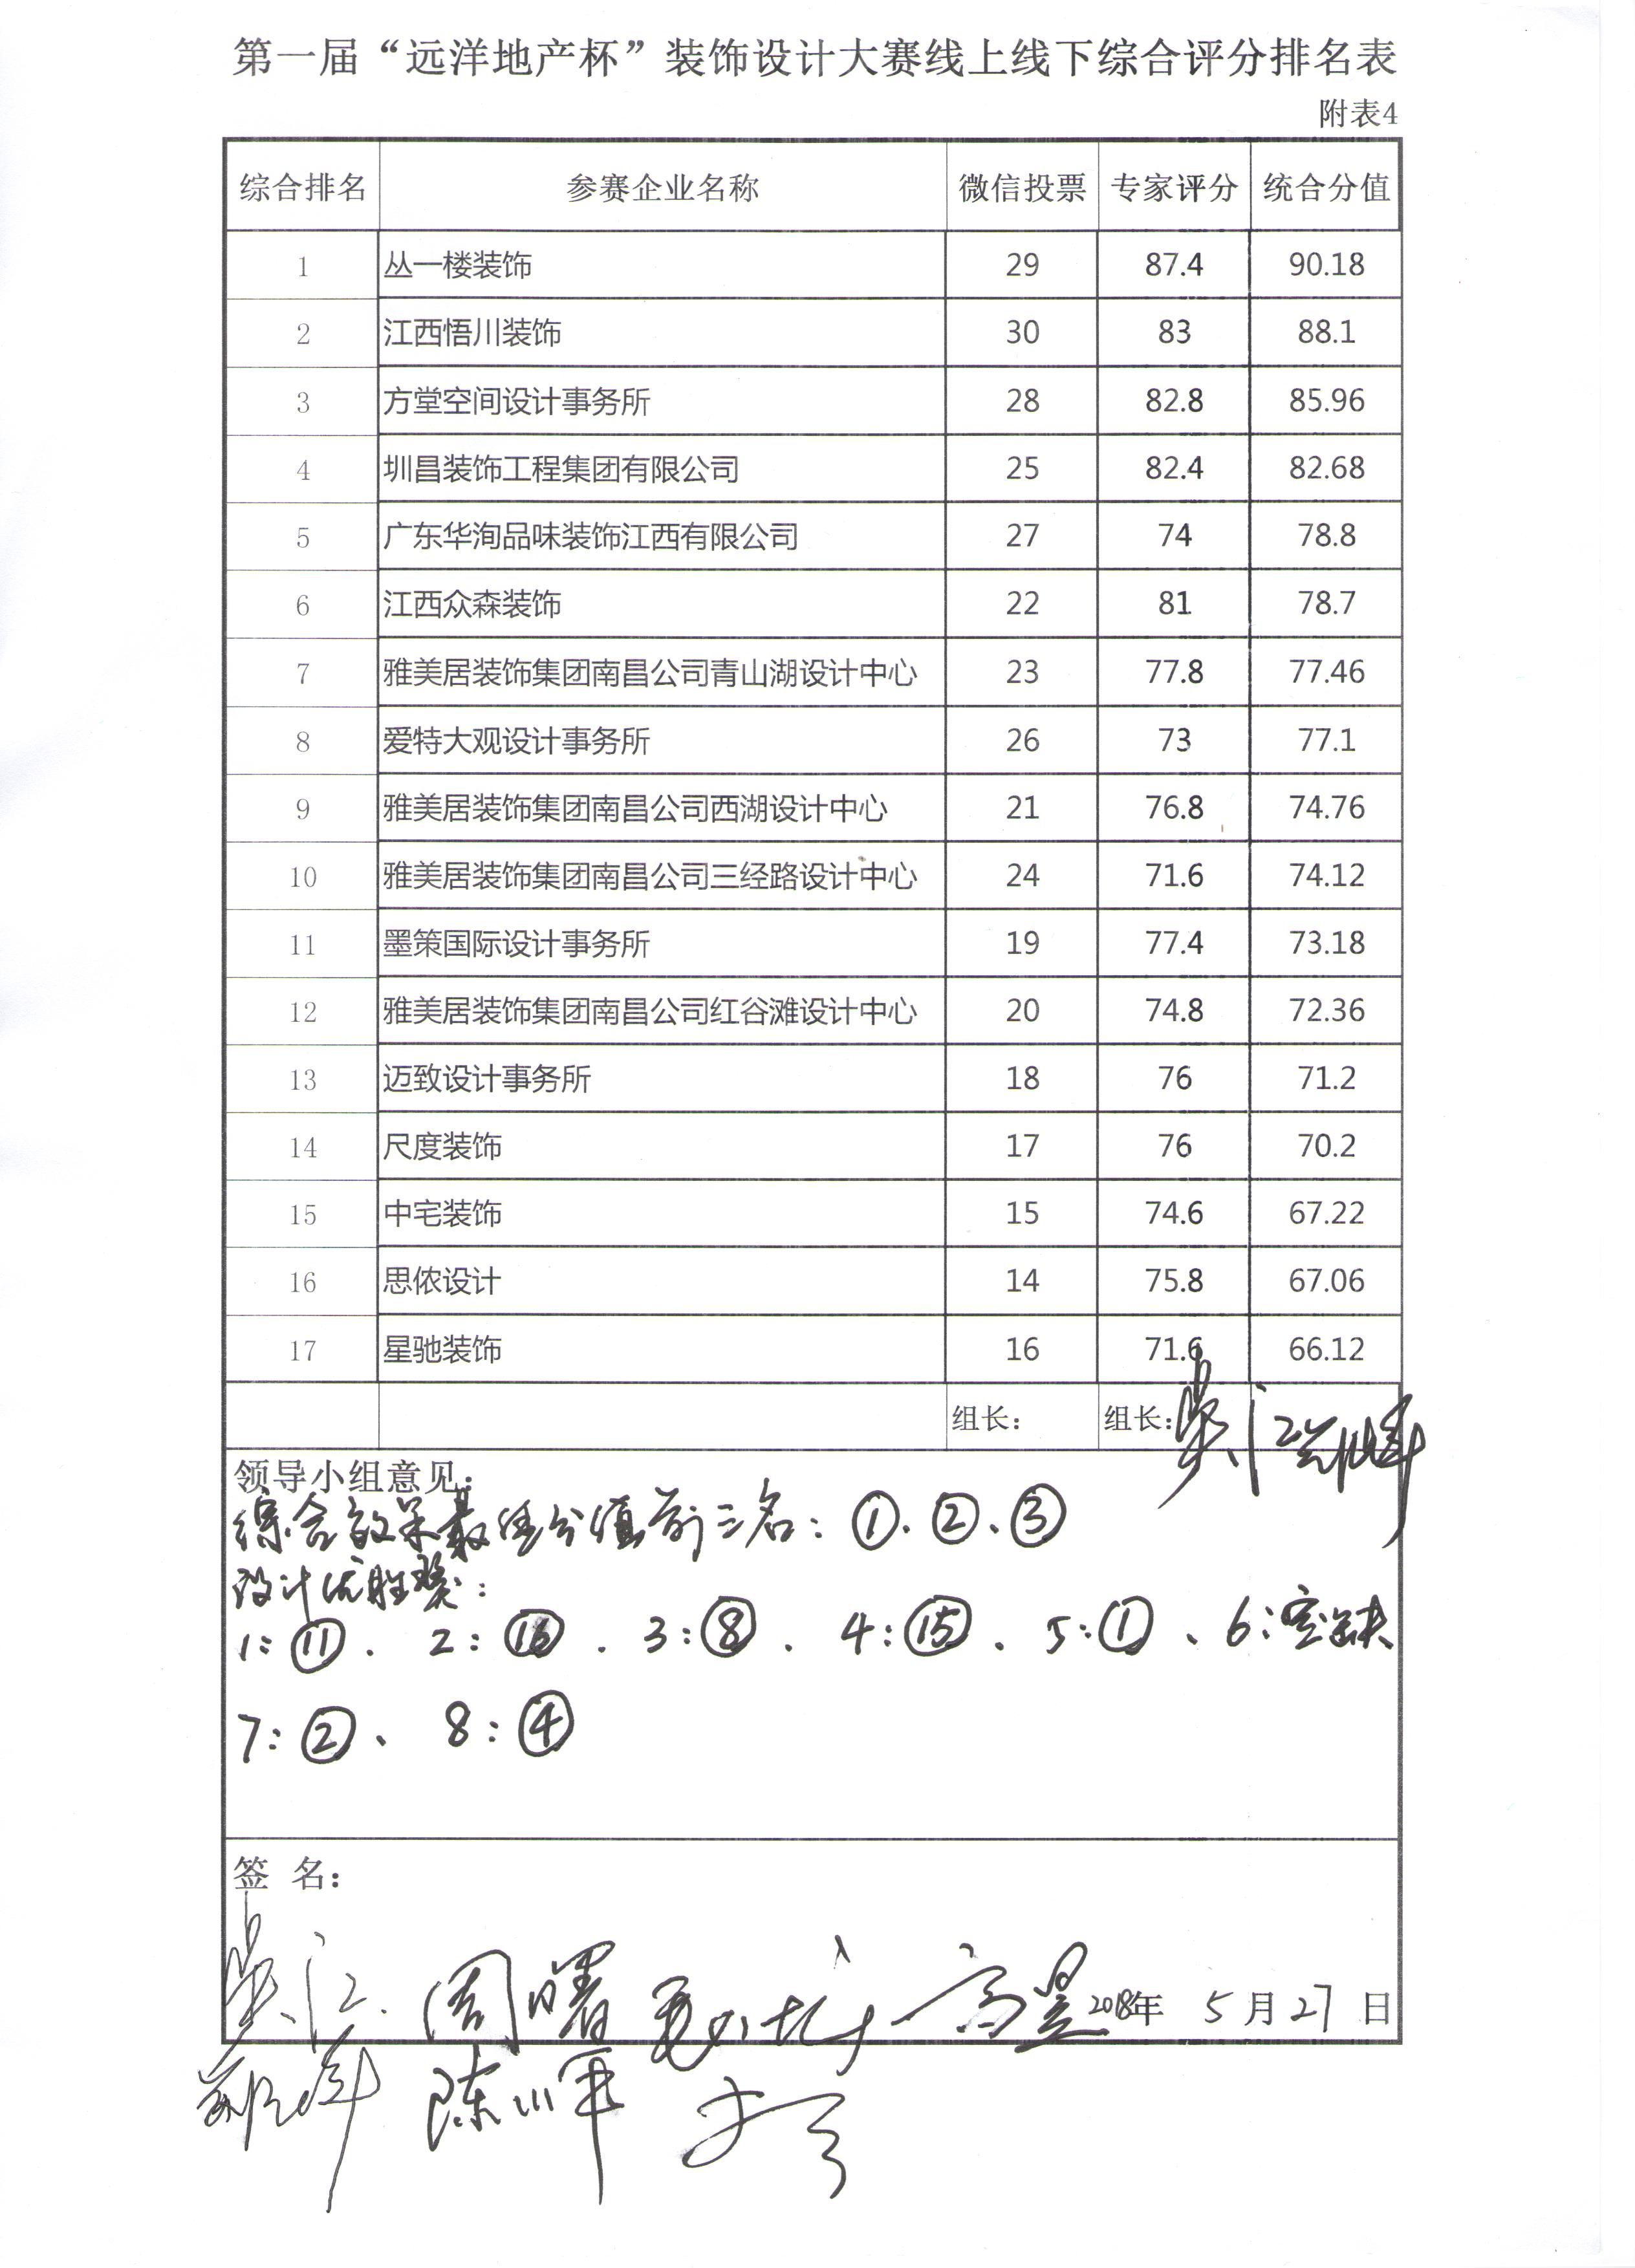 第一届“远洋地产杯”装饰设计大赛线上线下综合评分排名表
附表4
综合排名 参赛企业名称 微信投票 专家评分 统合分值
1 丛一楼装饰 29 87.4 90.18
2 江西悟川装饰 30 83 88.1
3 方堂空间设计事务所 28 82.8 85.96
4 圳昌装饰工程集团有限公司 25 82.4 82.68
5 广东华洵品味装饰江西有限公司 27 74 78.8
6 江西众森装饰 22 81 78.7
7 雅美居装饰集团南昌公司青山湖设计中心 23 77.8 77.46
8 爱特大观设计事务所 26 73 77.1
9 雅美居装饰集团南昌公司西湖设计中心 21 76.8 74.76
10 雅美居装饰集团南昌公司三经路设计中心 24 71.6 74.12
11 墨策国际设计事务所 19 77.4 73.18
12 雅美居装饰集团南昌公司红谷滩设计中心 20 74.8 72.36
13 迈致设计事务所 18 76 71.2
14 尺度装饰 17 76 70.2
15 中宅装饰 15 74.6 67.22
16 思侬设计 14 75.8 67.06
17 星驰装饰 16 71.6 66.12
组长： 组长：
领导小组意见：
综合效果最佳分值前三名：①、②、③
设计优胜奖：
1:⑪、2:⑯、3:⑧、4:⑮、5:①、6:空缺
7:②、8:④
签 名：
周曙 高昱 2018年 5月27日
陈军